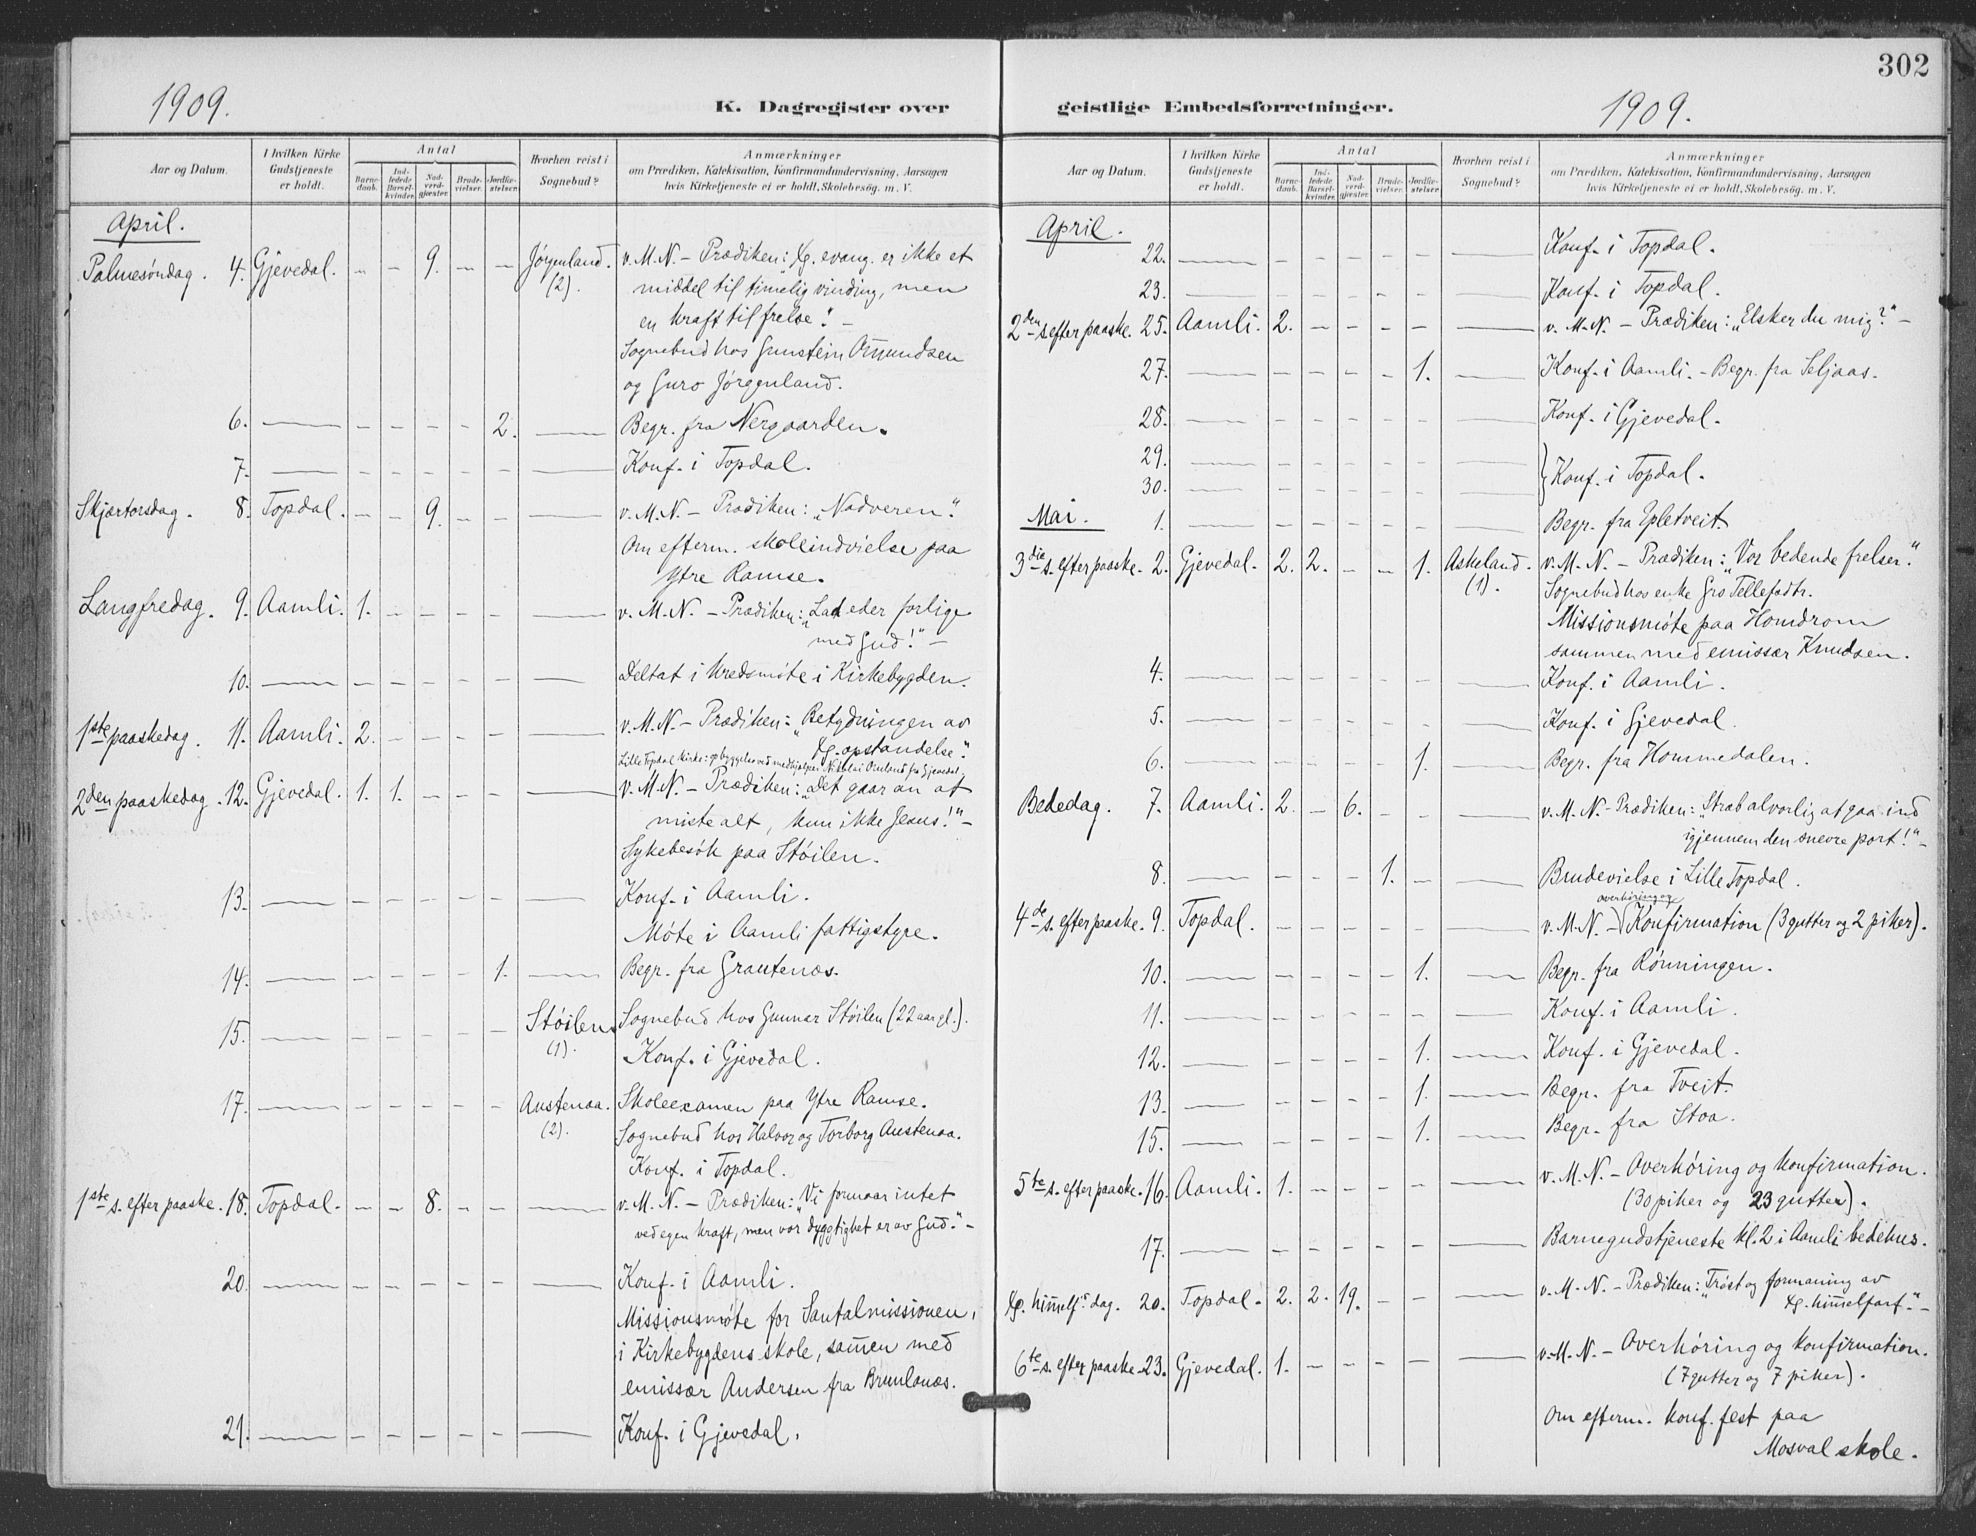 1909.
K. Dagregister over
Aar og Datum.
I hvilken Kirke Gudstjeneste er holdt.
Antal
Barnedaab.
Indledede Barselkvinder.
Nadverdgjæster.
Brudevielser.
Jordfæstelser.
Hvorhen reist i Sognebud?
Anmærkninger
om Prædiken, Katekisation, Konfirmandundervisning, Aarsagen
hvis Kirketjeneste ei er holdt, Skolebesøg. m. V.
April.
Palmesøndag. 4. Gjevedal. – – 9. – – Jørgenland. (2). v. M. N. – Prædiken: "Χp. evang. er ikke et
middel til timelig vinding, men
en kraft til frelse." –
Sognebud hos Gunstein Omundsen
og Guro Jørgenland.
6. — – – – – 2. — Begr. fra Nergaarden.
7. — – – – – – — Konf. i Topdal.
Skjærtorsdag. 8. Topdal. – – 9. – – — v. M. N. – Prædiken: "Nadveren."
Om efterm. skoleindvielse paa
Ytre Ramse.
Langfredag. 9. Aamli. 1. – – – – — v. M. N. – Prædiken: "Lad eder forlige
med Gud!" –
10. — – – – – – — Deltat i kredsmøte i Kirkebygden.
1ste paaskedag. 11. Aamli. 2. – – – – — v. M. N. – Prædiken: "Betydningen av
Χp. opstandelse."
Lille Topdal kirke: opbyggelse ved medhjælper Nikolai Omland fra Gjevedal.
2den paaskedag. 12. Gjevedal. 1. 1. – – – — v. M. N. – Prædiken: "Det gaar an at
miste alt, kun ikke Jesus!" –
Sykebesøk paa Støilen.
13. — – – – – – — Konf. i Aamli.
Møte i Aamli fattigstyre.
14. — – – – – 1. — Begr. fra Grautenæs.
15. — – – – – – Støilen. (1). Sognebud hos Gunnar Støilen (22 aar gl.).
Konf. i Gjevedal.
17. — – – – – – Austenaa. (2). Skoleexamen paa Ytre Ramse.
Sognebud hos Halvor og Torborg Austenaa.
Konf. i Topdal.
1ste s. efter paaske. 18. Topdal. – – 8. – – — v. M. N. – Prædiken: "Vi formaar intet
ved egen kraft, men vor dygtighet er av Gud." –
20. — – – – – – — Konf. i Aamli.
Missionsmøte for Santalmissionen,
i Kirkebygdens skole, sammen med
emissær Andersen fra Brunlanæs.
21. — – – – – – — Konf. i Gjevedal.
302
geistlige Embedsforretninger.
1909.
Aar og Datum.
I hvilken Kirke Gudstjeneste er holdt.
Antal
Barnedaab.
Indledede Barselkvinder.
Nadverdgjæster.
Brudevielser.
Jordfæstelser.
Hvorhen reist i Sognebud?
Anmærkninger
om Prædiken, Katekisation, Konfirmandundervisning, Aarsagen
hvis Kirketjeneste ei er holdt, Skolebesøg. m. V.
April.
22. — – – – – – — Konf. i Topdal.
23. — – – – – – — Konf. i Topdal.
2den s. efter paaske. 25. Aamli. 2. – – – – — v. M. N. – Prædiken: "Elsker du mig?" –
27. — – – – – 1. — Konf. i Aamli. – Begr. fra Seljaas.
28. — – – – – – — Konf. i Gjevedal.
29. — – – – – – —
30. — – – – – – — } Konf. i Topdal.
Mai. 1. — – – – – – — Begr. fra Epletveit.
3die s. efter paaske. 2. Gjevedal. 2. 2. – – 1. Askeland. (1). v. M. N. – Prædiken: "Vor bedende frelser."
Sognebud hos enke Gro Tellefsdtr.
Missionsmøte paa Homdrom
sammen med emissær Knudsen.
4. — – – – – – — Konf. i Aamli.
5. — – – – – – — Konf. i Gjevedal.
6. — – – – – 1. — Begr. fra Hommedalen.
Bededag. 7. Aamli. 2. – 6. – – — v. M. N. – Prædiken: "Stræb alvorlig at gaa ind
igjennem den snevre port!" –
8. — – – – 1. – — Brudevielse i Lille Topdal.
4de s. efter paaske. 9. Topdal. – – – – – — v. M. N. – overhøring og Konfirmation (3 gutter og 2 piker).
10. — – – – – 1. — Begr. fra Rønningen.
11. — – – – – – — Konf. i Aamli.
12. — – – – – 1. — Konf. i Gjevedal.
13. — – – – – 1. — Begr. fra Tveit.
15. — – – – – 1. — Begr. fra Stoa.
5te s. efter paaske. 16. Aamli. 1. – – – – — v. M. N. – Overhøring og konfirmation.
(30 piker og 23 gutter).
17. — – – – – – — Barnegudstjeneste kl. 2 i Aamli bedehus.
Χp. himmelf.s dag. 20. Topdal. 2. 2. 19. – – — v. M. N. – Prædiken: "Trøst og formaning av
Χp. himmelfart." –
6te s. efter paaske. 23. Gjevedal. 1. – – – – — v. M. N. – Overhøring og konfirmation.
(7 gutter og 7 piker).
Om efterm. konf. fest paa
Mosval skole.